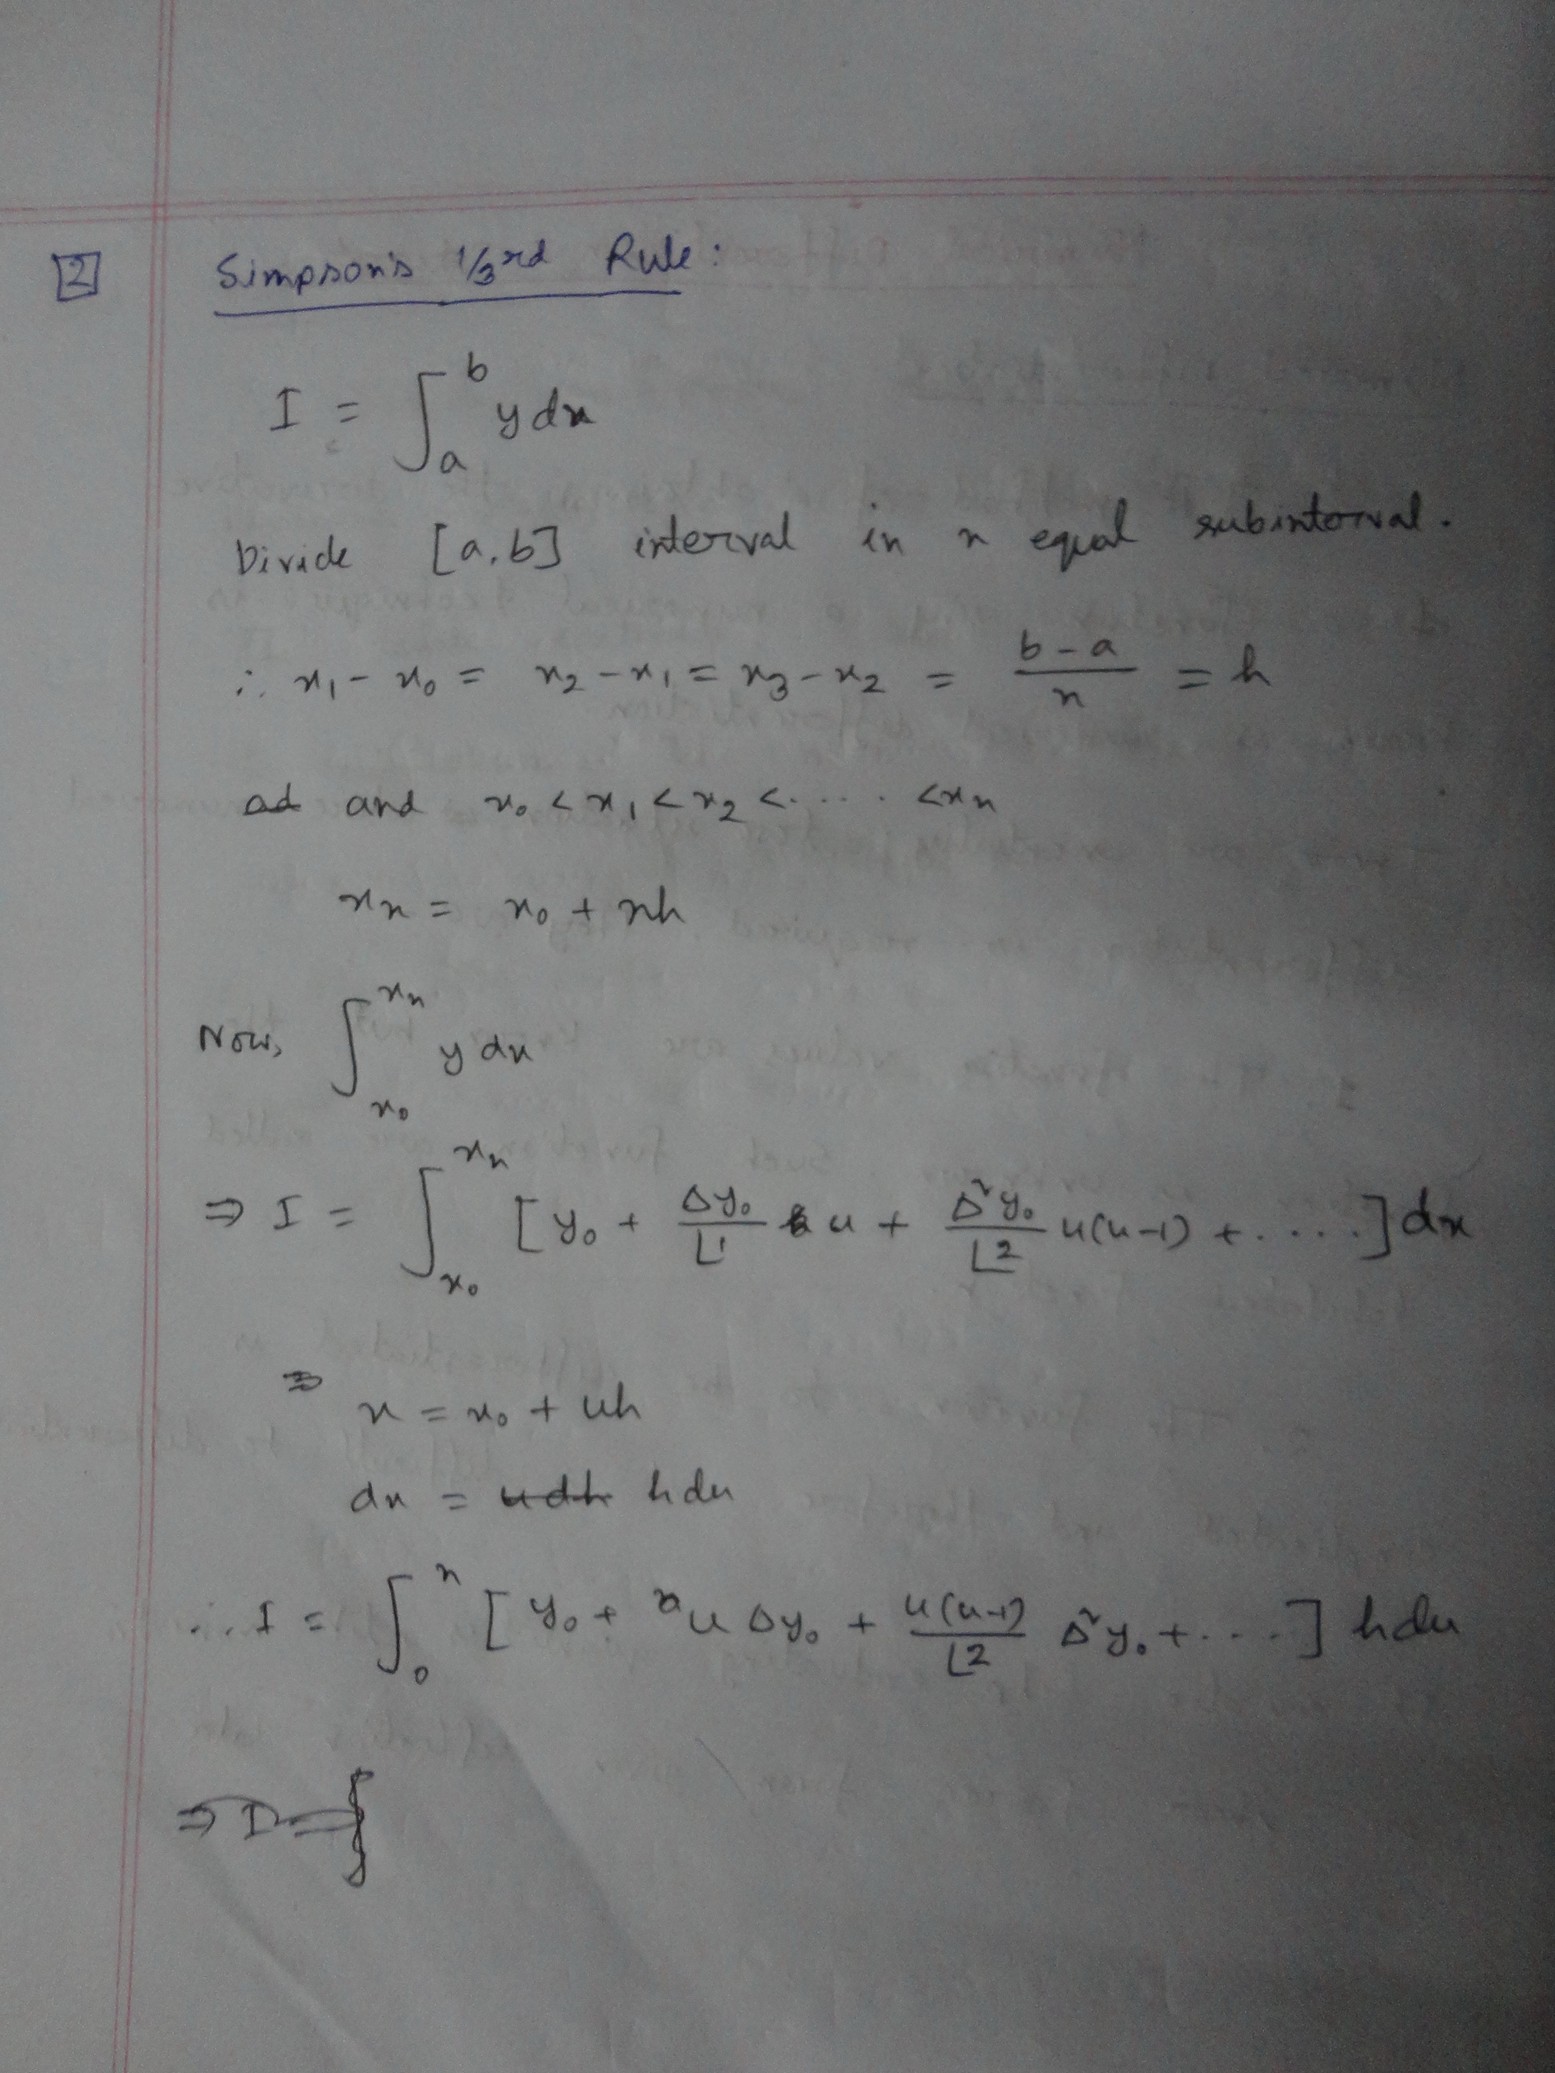 [2] Simpson's 1/3rd Rule:
I = ∫_a^b y dx
Divide [a,b] interval in n equal subinterval.
∴ x₁ - x₀ = x₂ - x₁ = x₃ - x₂ = (b-a)/n = h
ad and x₀ < x₁ < x₂ < ..... < xₙ
xₙ = x₀ + nh
Now, ∫_{x₀}^{xₙ} y dx
⇒ I = ∫_{x₀}^{xₙ} [y₀ + Δy₀/⌊1 u + Δ²y₀/⌊2 u(u-1) + .....] dx
⇒ x = x₀ + uh
dx = udh h du
∴ I = ∫_0^n [y₀ + u Δy₀ + u(u-1)/⌊2 Δ²y₀ + ....] h du
⇒ I = ∫